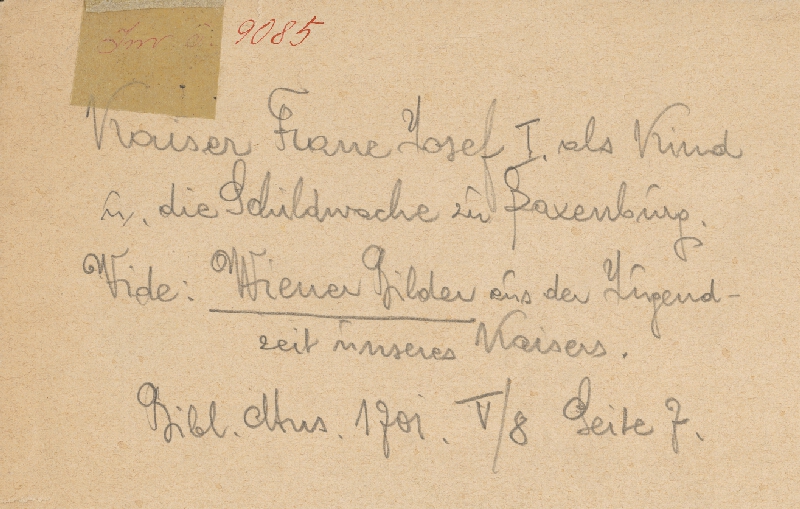 9085
Kaiser Franz Josef I. als Kind
u. die Schildwache zu Laxenburg.
Vide: Wiener Bilder aus der Jugend-
zeit unseres Kaisers.
Bibl. Mus. 1701. V/8 Seite 7.